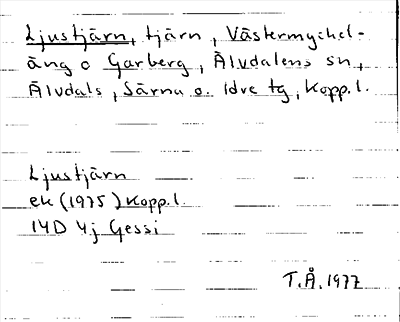 Ljustjärn, tjärn, Västermyckel-
äng o Garberg, Älvdalens sn,
Älvdals, Särna o. Idre tg, Kopp. l.
Ljustjärn
ek (1975) Kopp. l.
14D 4j Gessi
T.Å. 1977